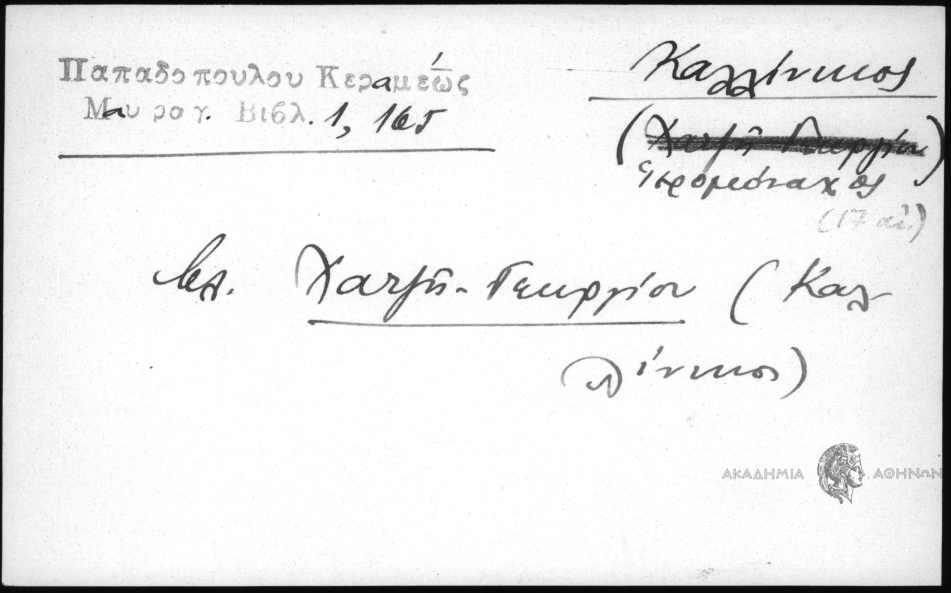 Παπαδοπουλου Κεραμέως
Μαυρογ. Βιβλ. 1, 165
Καλλίνικος
(Χατζῆ Γεωργίου)
ἱερομόναχος
(17 αἰ.)
βλ. Χατζῆ-Γεωργίου (Καλ-
λίνικος)
ΑΚΑΔΗΜΙΑ ΑΘΗΝΩΝ